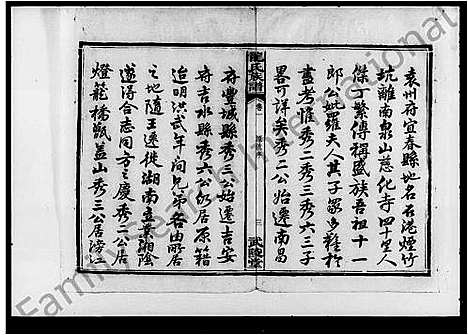 袁州府宜春縣地名石港煙竹
坑離南泉山慈化寺四十里人
傑丁繁傳稱盛族吾祖十一
郎公妣羅夫人其子眾多難於
盡考惟秀二秀三秀六三子
畧可詳矣秀二公始遷南昌
龍氏族譜
卷一
三
武陵堂
府豐城縣秀三公始遷吉安
府吉水縣秀六公仍居原籍
迨明洪武年間兄弟各由所居
之地隨王遷徙湖南立業湘陰
遂得合志同方之慶秀二公居
燈籠橋甑蓋山秀三公居滂江
FamilySearch International